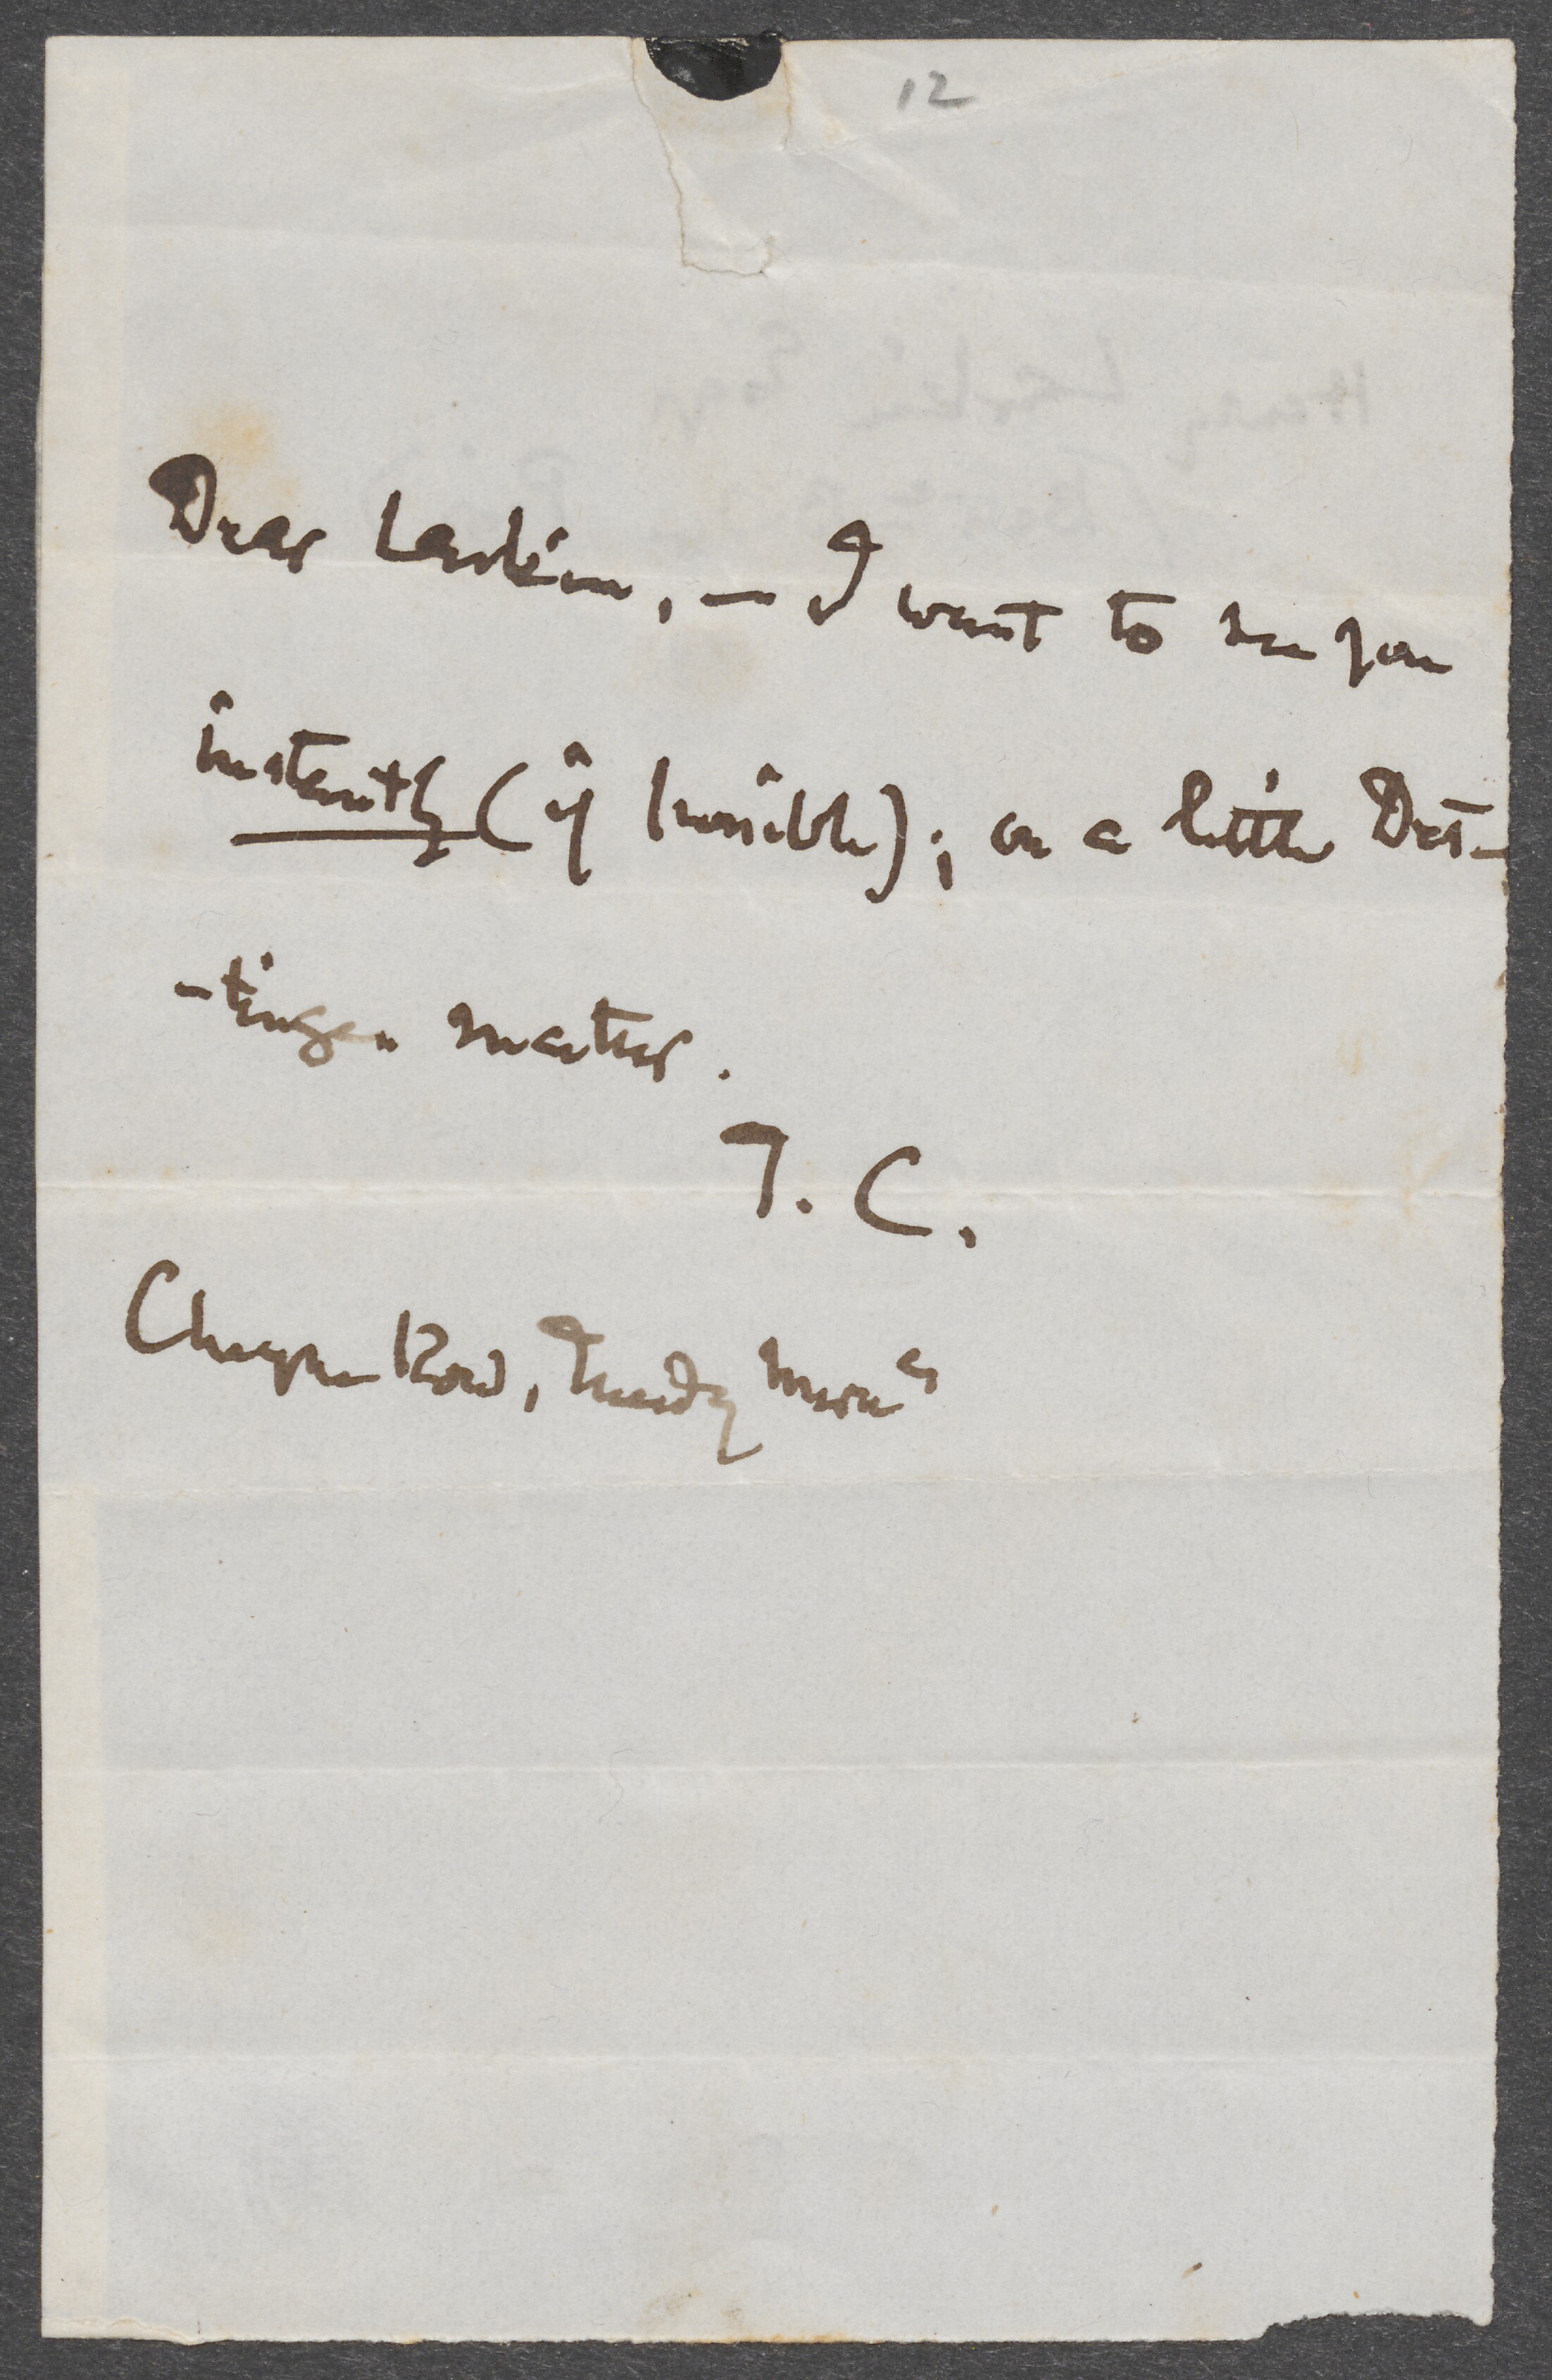 12
Dear Larkin, — I want to see you
instantly (if possible); on a little Det-
-tingen matter.
T. C.
Cheyne Row, Tuesdy Morn<sup>g</sup>